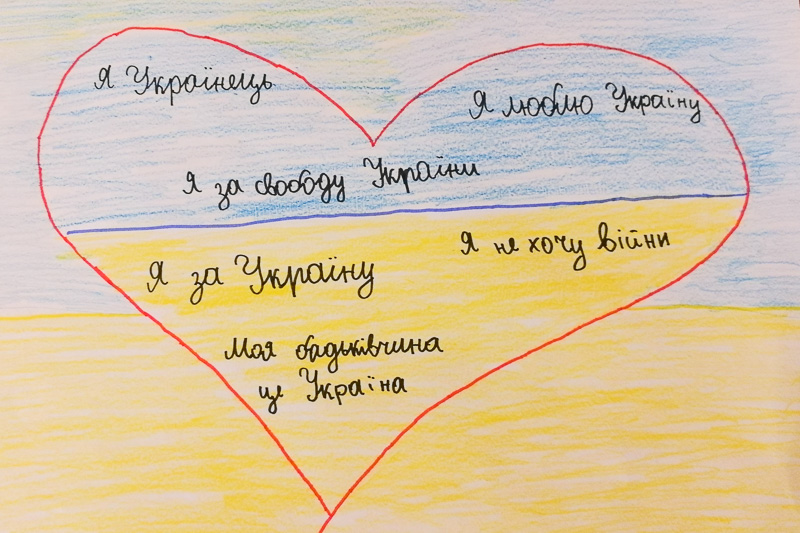 Я Українець
Я люблю Україну
Я за свободу України
Я не хочу війни
Я за Україну
Моя бадьківчина
це Україна